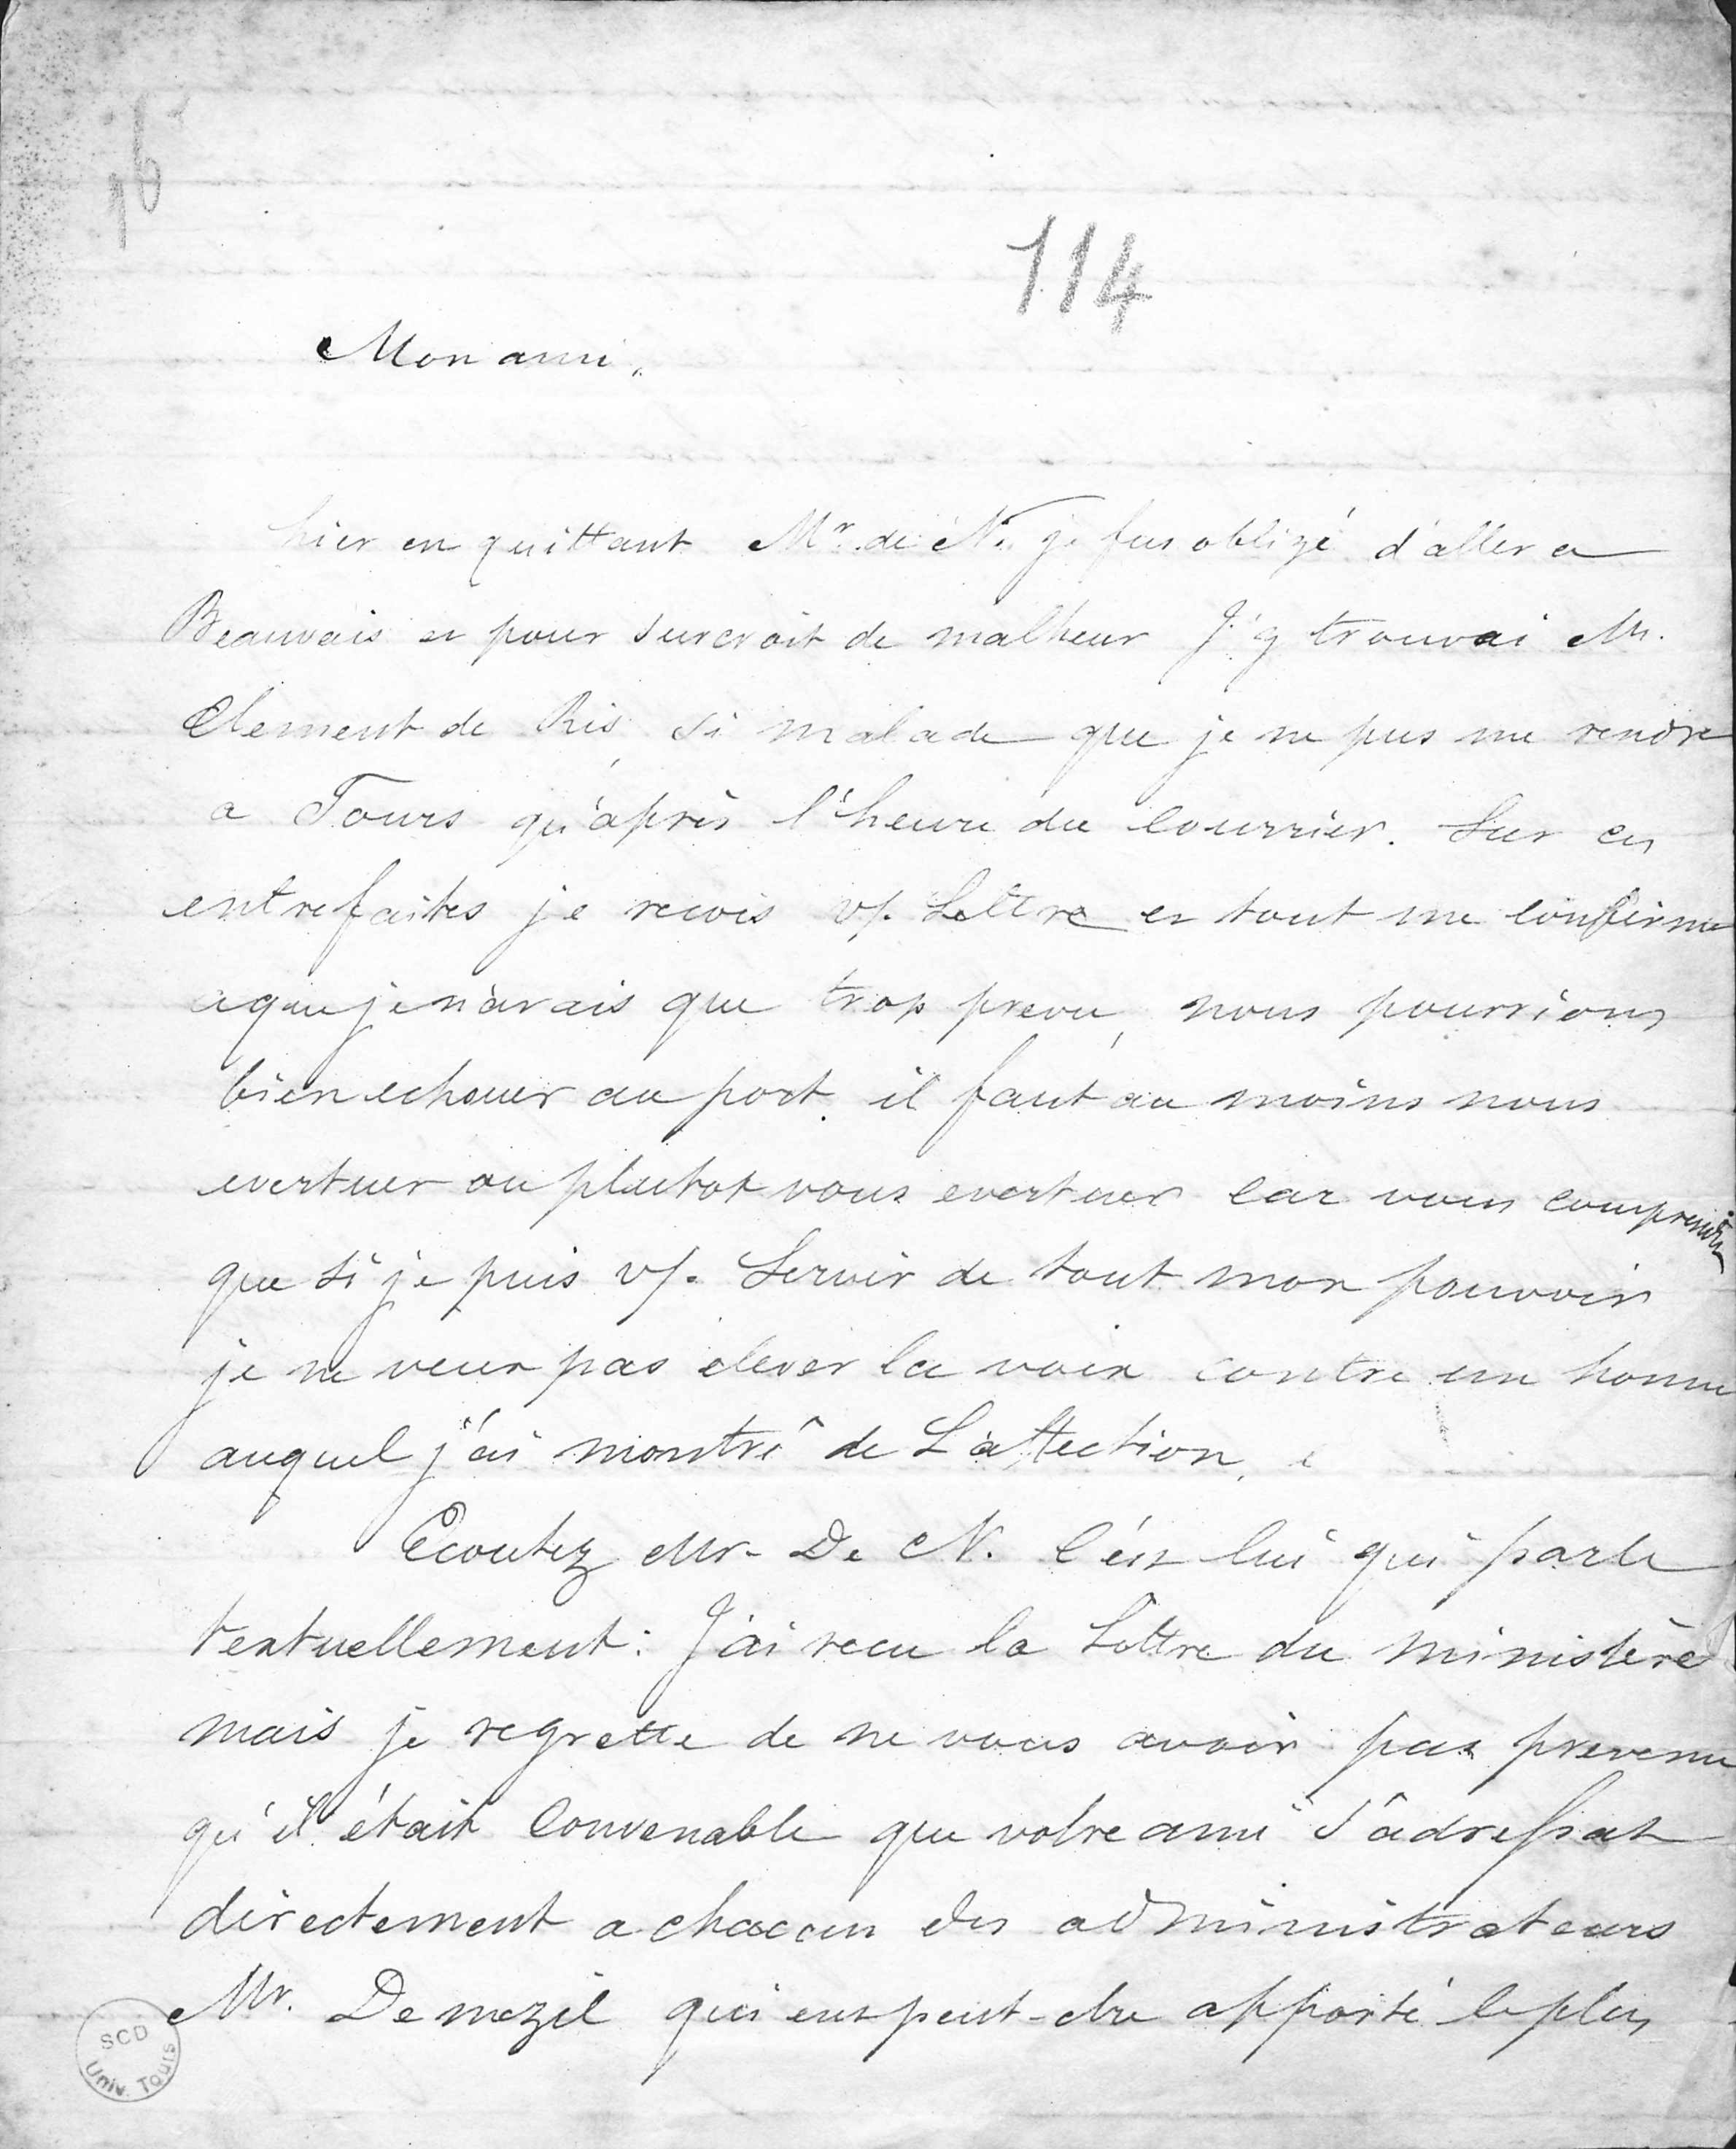 16
114
Mon ami,
hier en quittant Mr. de N. je fus obligé d'aller a
Beauvais et pour surcroit de malheur J'y trouvai M.
Clement de Ris, si malade que je ne pus me rendre
a Tours qu'après l'heure du courrier. Sur ces
entrefaites je recois v/. Lettre et tout me confirme
ce que je n'avais que trop prevu, nous pourrions
bien echouer au port. il faut au moins nous
evertuer ou plutot vous evertuer car vous comprendrez
que si je puis v/. Servir de tout mon pouvoir
je ne veux pas elever la voix contre un homme
auquel j'ai montré de L'affection.
Ecoutez Mr. De N. c'est lui qui parle
textuellement : J'ai recu la Lettre du ministère
mais je regrette de ne vous avoir pas prevenu
qu'il était Convenable que votre ami s'adressat
directement a chacun des administrateurs
Mr. De mezil qui eut peut-etre apporté le plus
SCD
Univ. Tours